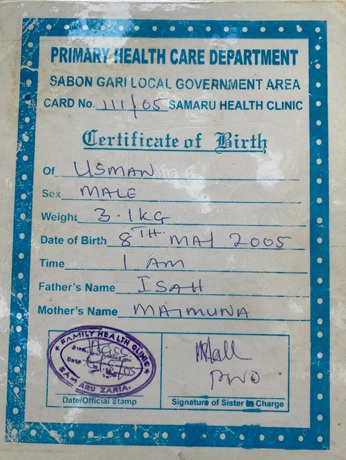 PRIMARY HEALTH CARE DEPARTMENT
SABON GARI LOCAL GOVERNMENT AREA
CARD No. 111/05 SAMARU HEALTH CLINIC
Certificate of Birth
Of USMAN
Sex MALE
Weight 3.1KG
Date of Birth 8TH MAJ 2005
Time 1 AM
Father's Name ISAH
Mother's Name MAJMUNA
FAMILY HEALTH CLINIC
Date
SAMARU ZARIA
Date/Official Stamp
Signature of Sister in Charge